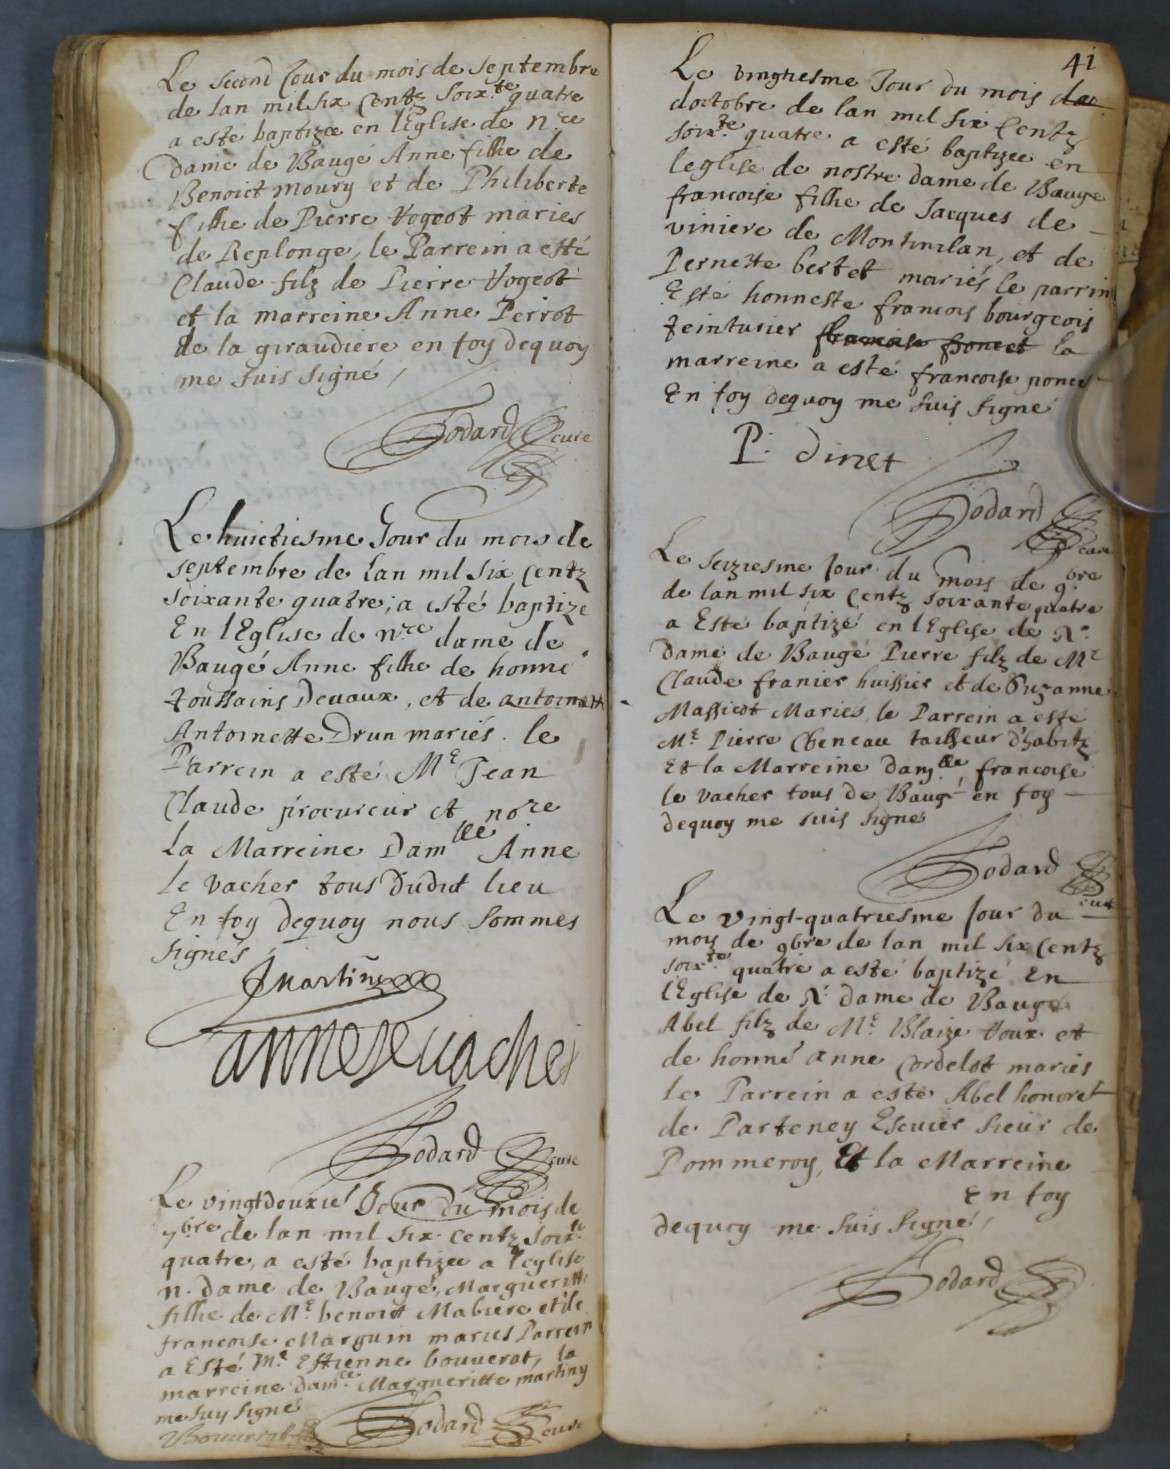 Le second Jour du mois de septembre
de lan mil six Centz Soixte quatre
a esté baptizée en l'Eglise de Nre
Dame de Baugé Anne filhe de
Benoict Moury et de Philiberte
filhe de Pierre Vogeot mariés
de Replonge, le Parrein a esté
Claude filz de Pierre Vogeot
et la marreine Anne Perrot
de la giraudiere en foy dequoy
me suis signé /
Godard cure
Le huictiesme Jour du mois de
septembre de Lan mil six Centz
Soixante quatre; a esté baptizé
En l'Eglise de nre dame de
Baugé Anne filhe de honne
toussains Devaux, et de antoinett
Antoinette Drun mariés. le
Parrein a esté Me Jean
Claude procureur et nore
La Marreine Damlle Anne
le vacher tous Dudit lieu
En foy dequoy nous sommes
signés
Martin
anne le vacher
Godard cure
Le vingtdeuxie Jour du mois de
7bre de lan mil six centz soixte
quatre, a esté baptizee a leglise
N. dame de Baugé, Margueritte
filhe de Me benoist Mabiere et de
francoise Marguin mariés Parrein
a Esté Me Estienne bouverot, la
marreine damlle Margueritte martiny
me suy signé
Bouverot
Godard cure
41
Le vingtiesme Jour du mois de
doctobre de lan mil six Centz
soixte quatre a esté baptizee en
leglise de nostre dame de Bauge
francoise filhe de Jacques de
viniere de Montmilan, et de
Pernette bertet mariés le parrin
Esté honneste francois bourgeois
teinturier francoise poncet la
marreine a esté francoise poncet
En foy dequoy me suis signé
P. dinet
Godard cure
Le seiziesme Jour du mois de 9bre
de lan mil six Centz soixante quatre
a Esté baptizé en l'Eglise de N.
Dame de Baugé Pierre filz de Me
Claude franier huissier et de Suzanne
Massicot Mariés, le Parrein a esté
Me Pierre Cheneau tailleur d'habitz
Et la Marreine Damlle francoise
le vacher tous de Baugé en foy
dequoy me suis signé
Godard cure
Le vingt-quatriesme Jour du
moy de 9bre de lan mil six Centz
soixte quatre a esté baptizé En
l'Eglise de N. dame de Baugé
Abel filz de Me Blaize Voux et
de honné anne Cordelot mariés
le Parrein a esté Abel honoret
de Parteney Escuier sieur de
Pommeroy, Et la Marreine
En foy
dequoy me suis signé,
Godard